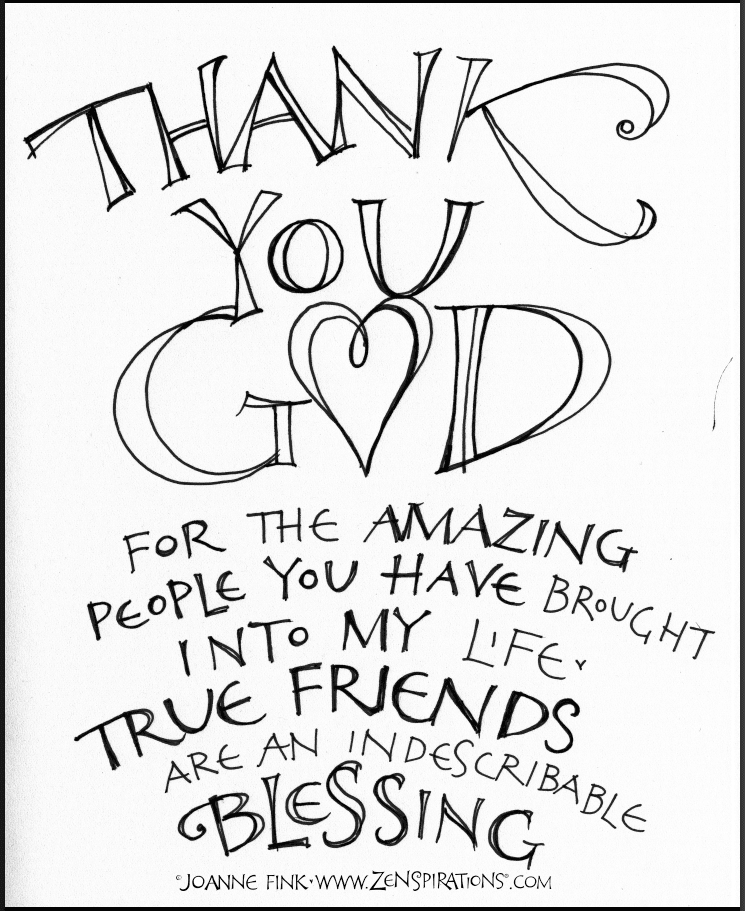 THANK
YOU
GOD
FOR THE AMAZING
PEOPLE YOU HAVE BROUGHT
INTO MY LIFE.
TRUE FRIENDS
ARE AN INDESCRIBABLE
BLESSING
©JOANNE FINK·WWW.ZENSPIRATIONS®.COM